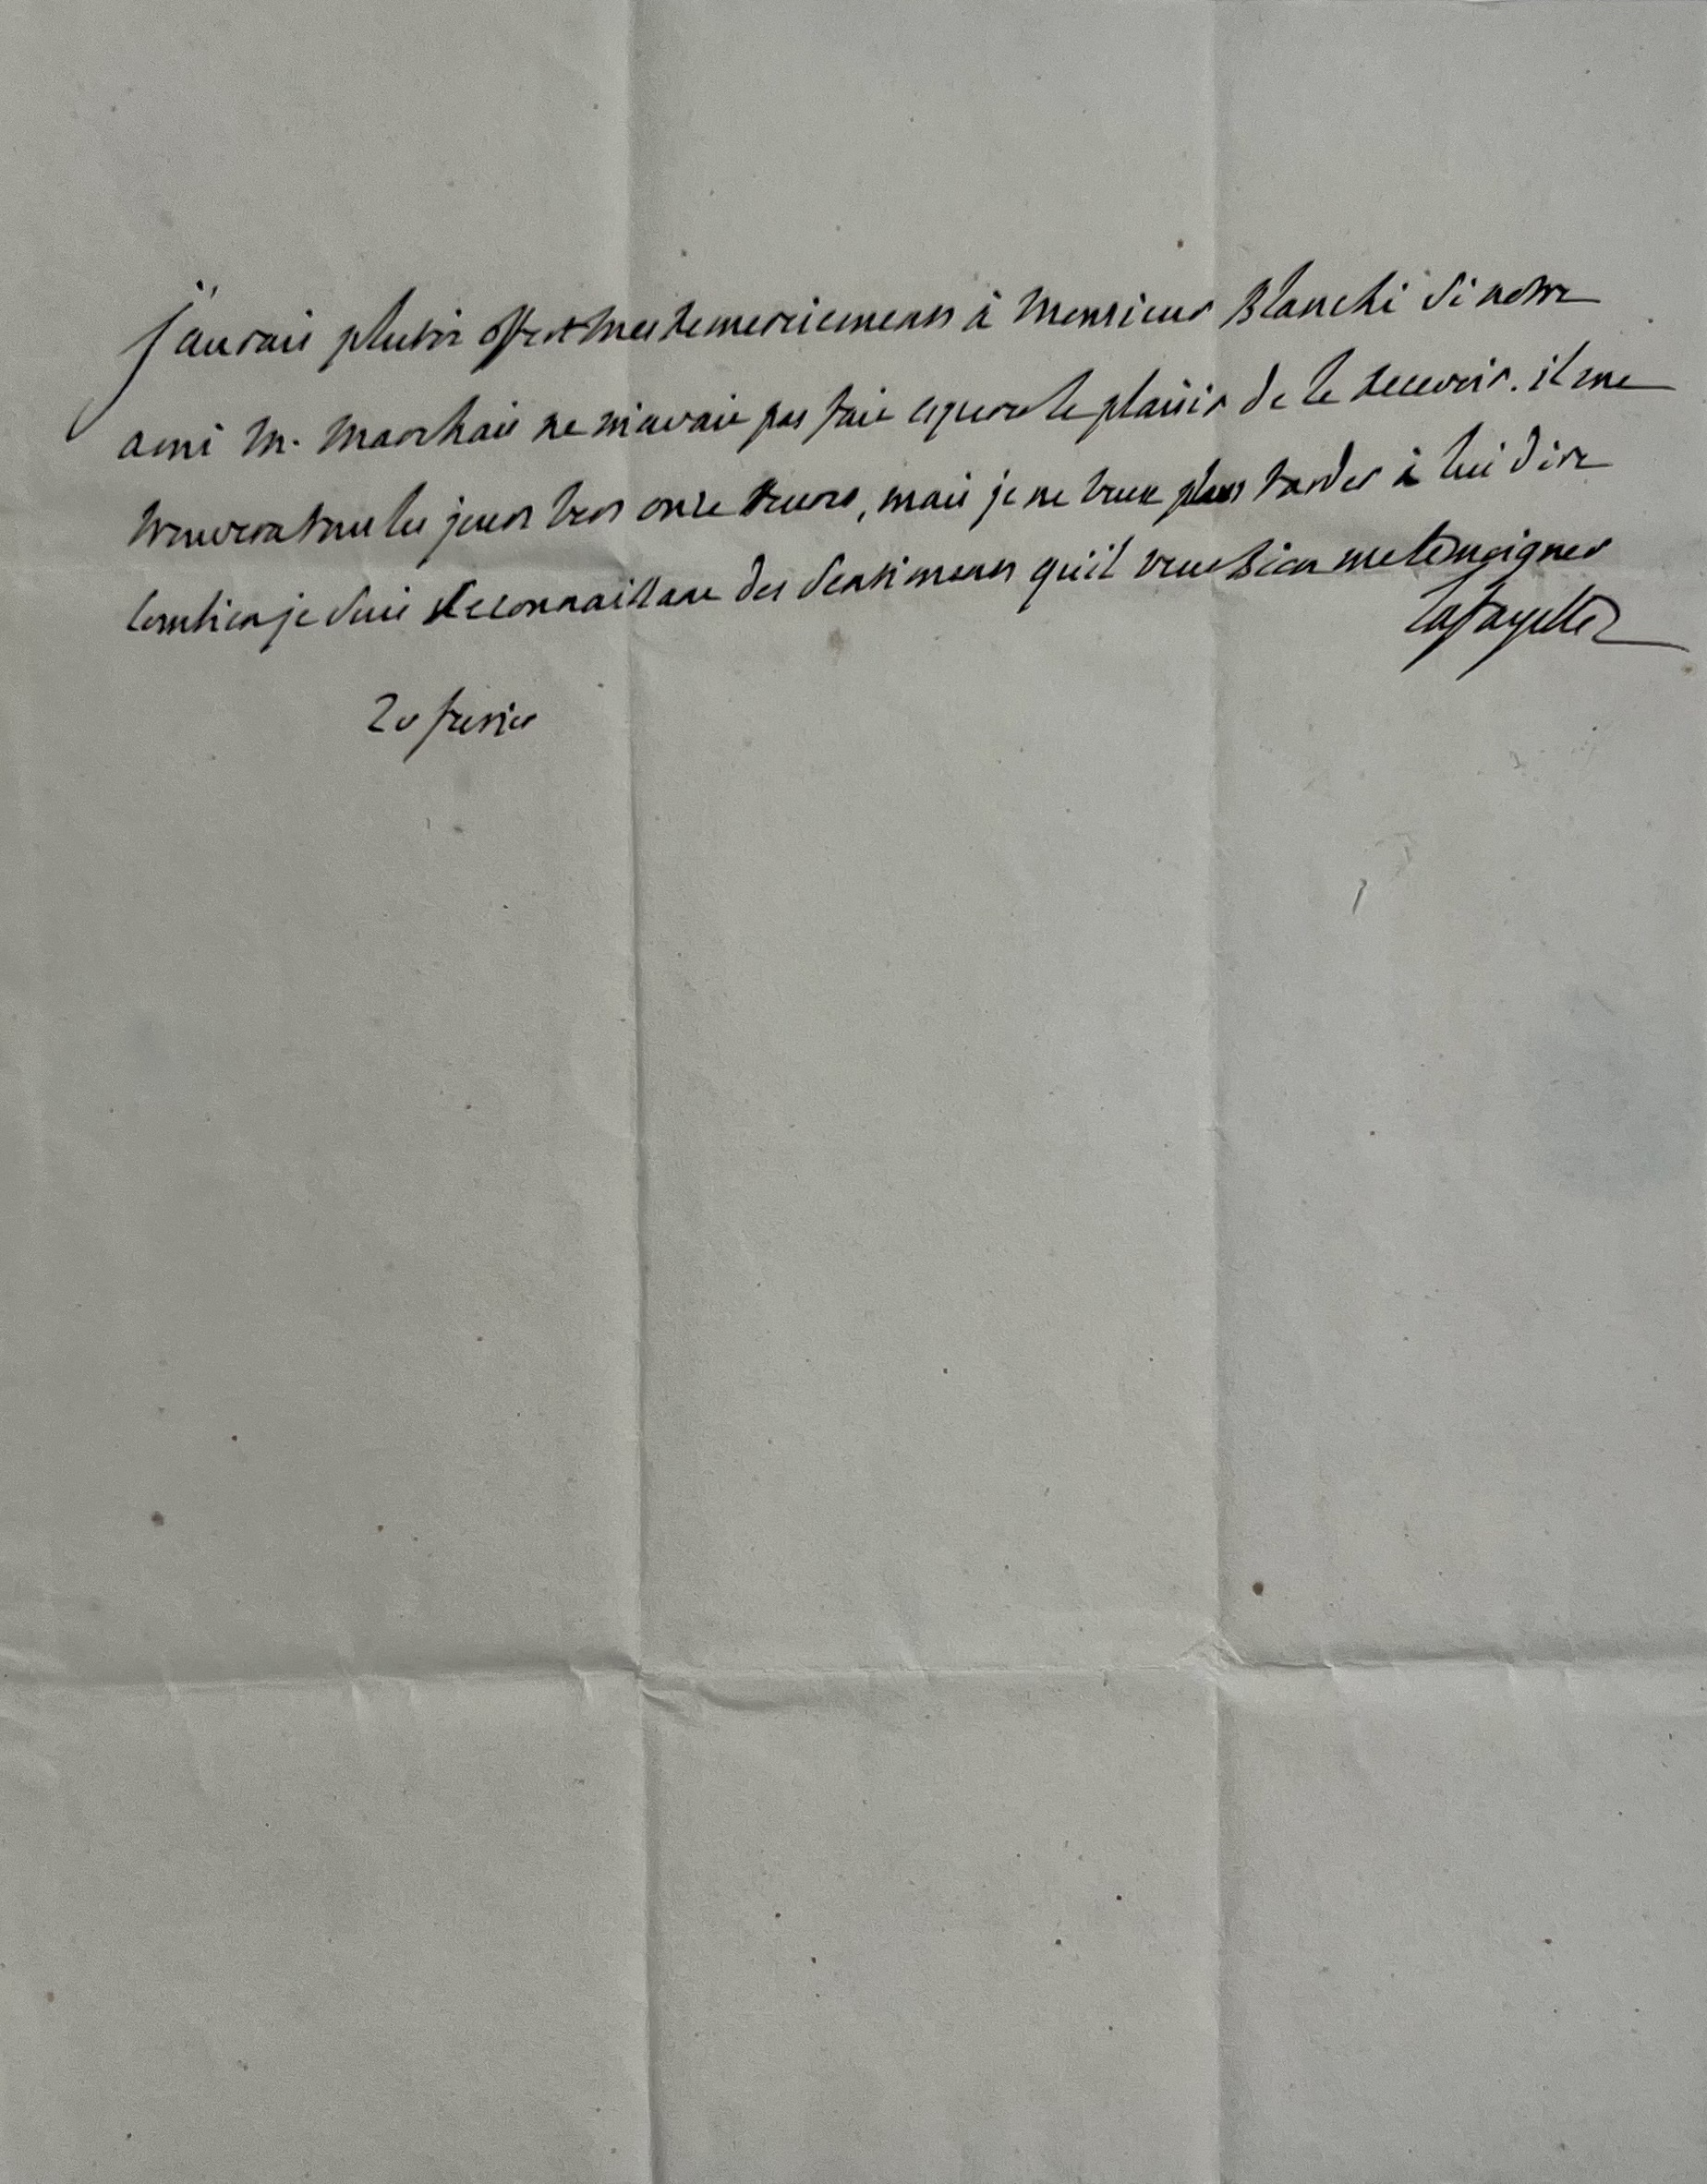 J'aurais plutôt offert mes remerciemens à Monsieur Blanchi si notre
ami M. Marchais ne m'avait pas fait esperer le plaisir de le recevoir. il me
trouvera tous les jours vers onze heures, mais je ne veux plus tarder à lui dire
combien je suis reconnaissant des sentimens qu'il veut bien me temoigner
Lafayette
20 fevrier